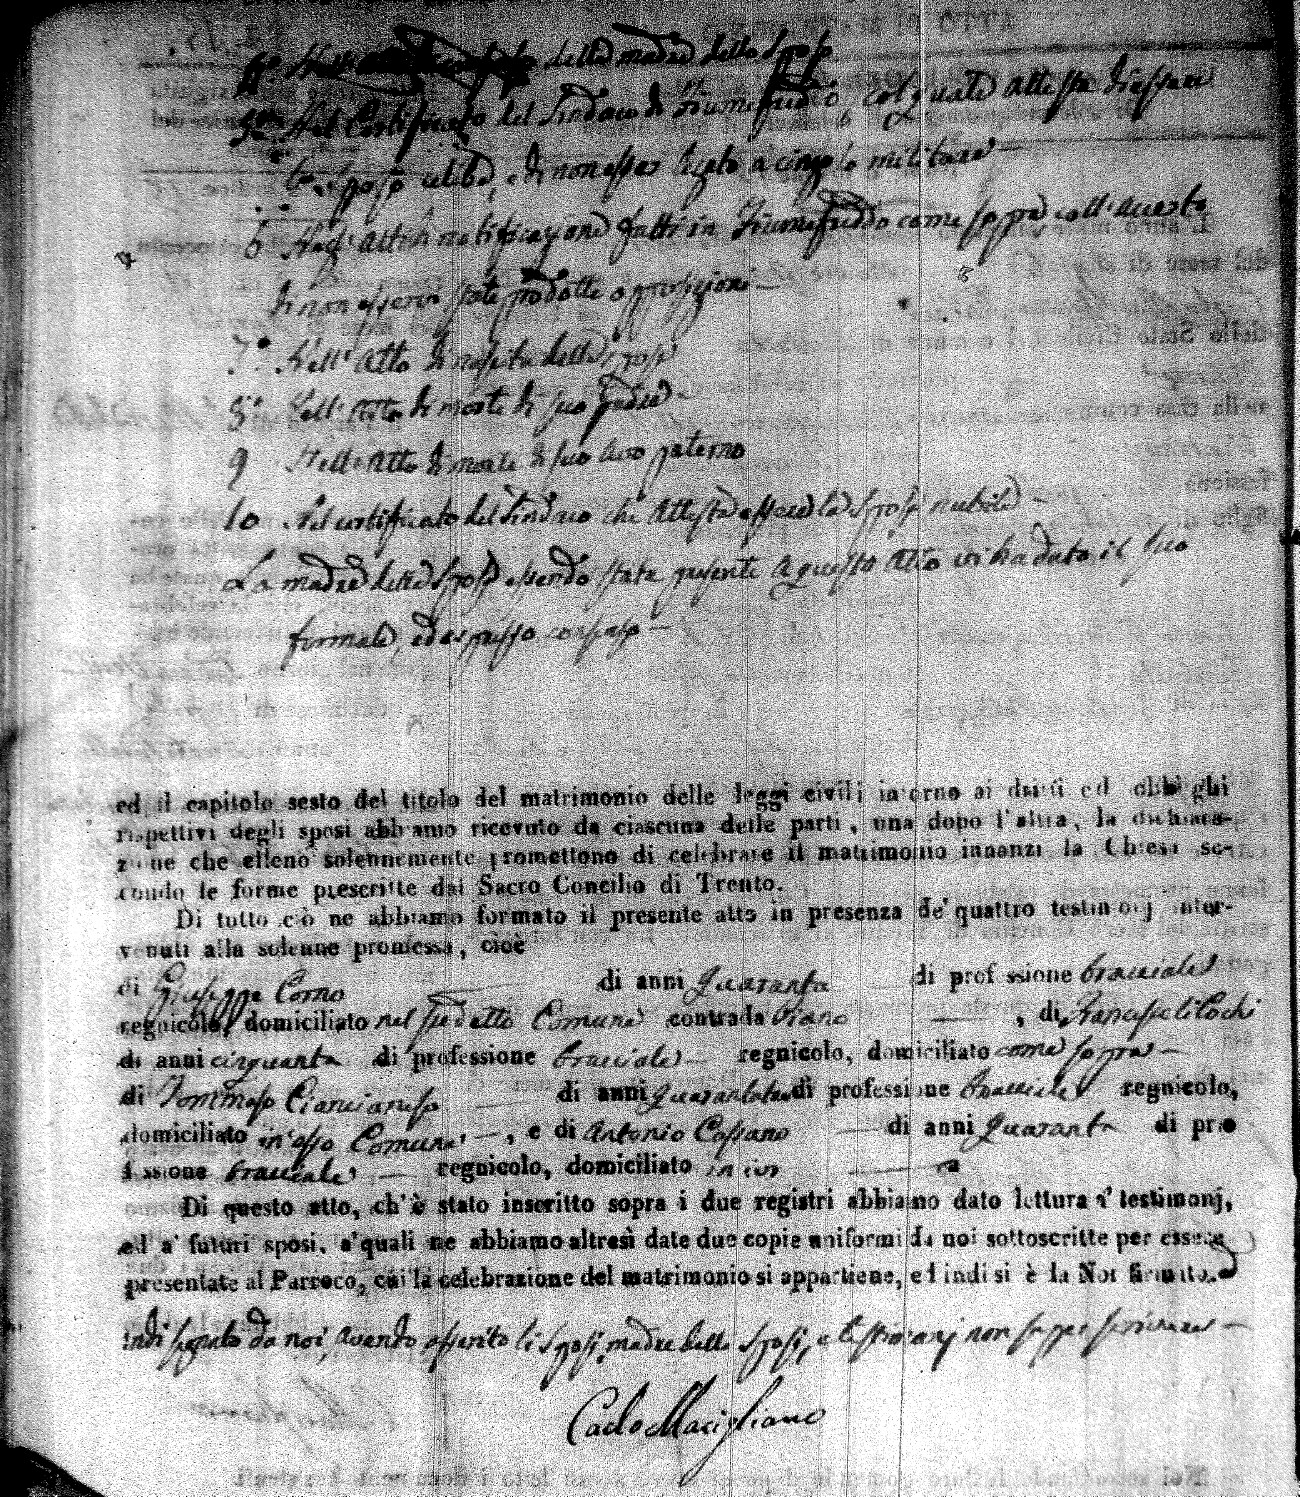 della madre dello Sposo
5º Nel Certificato del Sindaco di Fiumefreddo, col quale attesta di essere
lo sposo celibe, e di non esser legato a cingolo militare —
6 Negl' atti di notificazione fatti in Fiumefreddo come sopra coll'
di non esservi state prodotte opposizioni —
7.º Nell' Atto di nascita della sposa
8.º Nell' Atto di morte di suo padre —
9 Nell' Atto di morte di suo Avo paterno
10 Nel certificato del Sindaco che attesta essere la Sposa nubile —
La madre della Sposa essendo stata presente a questo Atto vi ha dato il suo
formale, ed espresso consenso —
ed il capitolo sesto del titolo del matrimonio delle leggi civili intorno ai dritti ed obblighi
rispettivi degli sposi abbiamo ricevuto da ciascuna delle parti, una dopo l'altra, la dichiara-
zione che elleno solennemente promettono di celebrare il matrimonio innanzi la Chiesa se-
condo le forme prescritte dal Sacro Concilio di Trento.
Di tutto ciò ne abbiamo formato il presente atto in presenza de' quattro testimonj inter-
venuti alla solenne promessa, cioè
di Giuseppe Corno — di anni Quaranta di professione bracciale
regnicolo, domiciliato nel predetto Comune contrada Piano — , di Francesco
di anni cinquanta di professione bracciale — regnicolo, domiciliato come sopra —
di Tommaso Cianciaruso — di anni di professione Bracciale regnicolo,
domiciliato in esso Comune —, e di Antonio Cossano — di anni Quaranta di pro
fessione bracciale — regnicolo, domiciliato in ivi —
Di questo atto, ch'è stato inscritto sopra i due registri abbiamo dato lettura a' testimonj,
ed a' futuri sposi, a' quali ne abbiamo altresì date due copie uniformi da noi sottoscritte per essere
presentate al Parroco, cui la celebrazione del matrimonio si appartiene, ed indi si è da Noi firmato.
indi segnato da noi, avendo asserito li Sposi, madre della Sposa, e testimonj non saper scrivere —
Carlo Macigliano